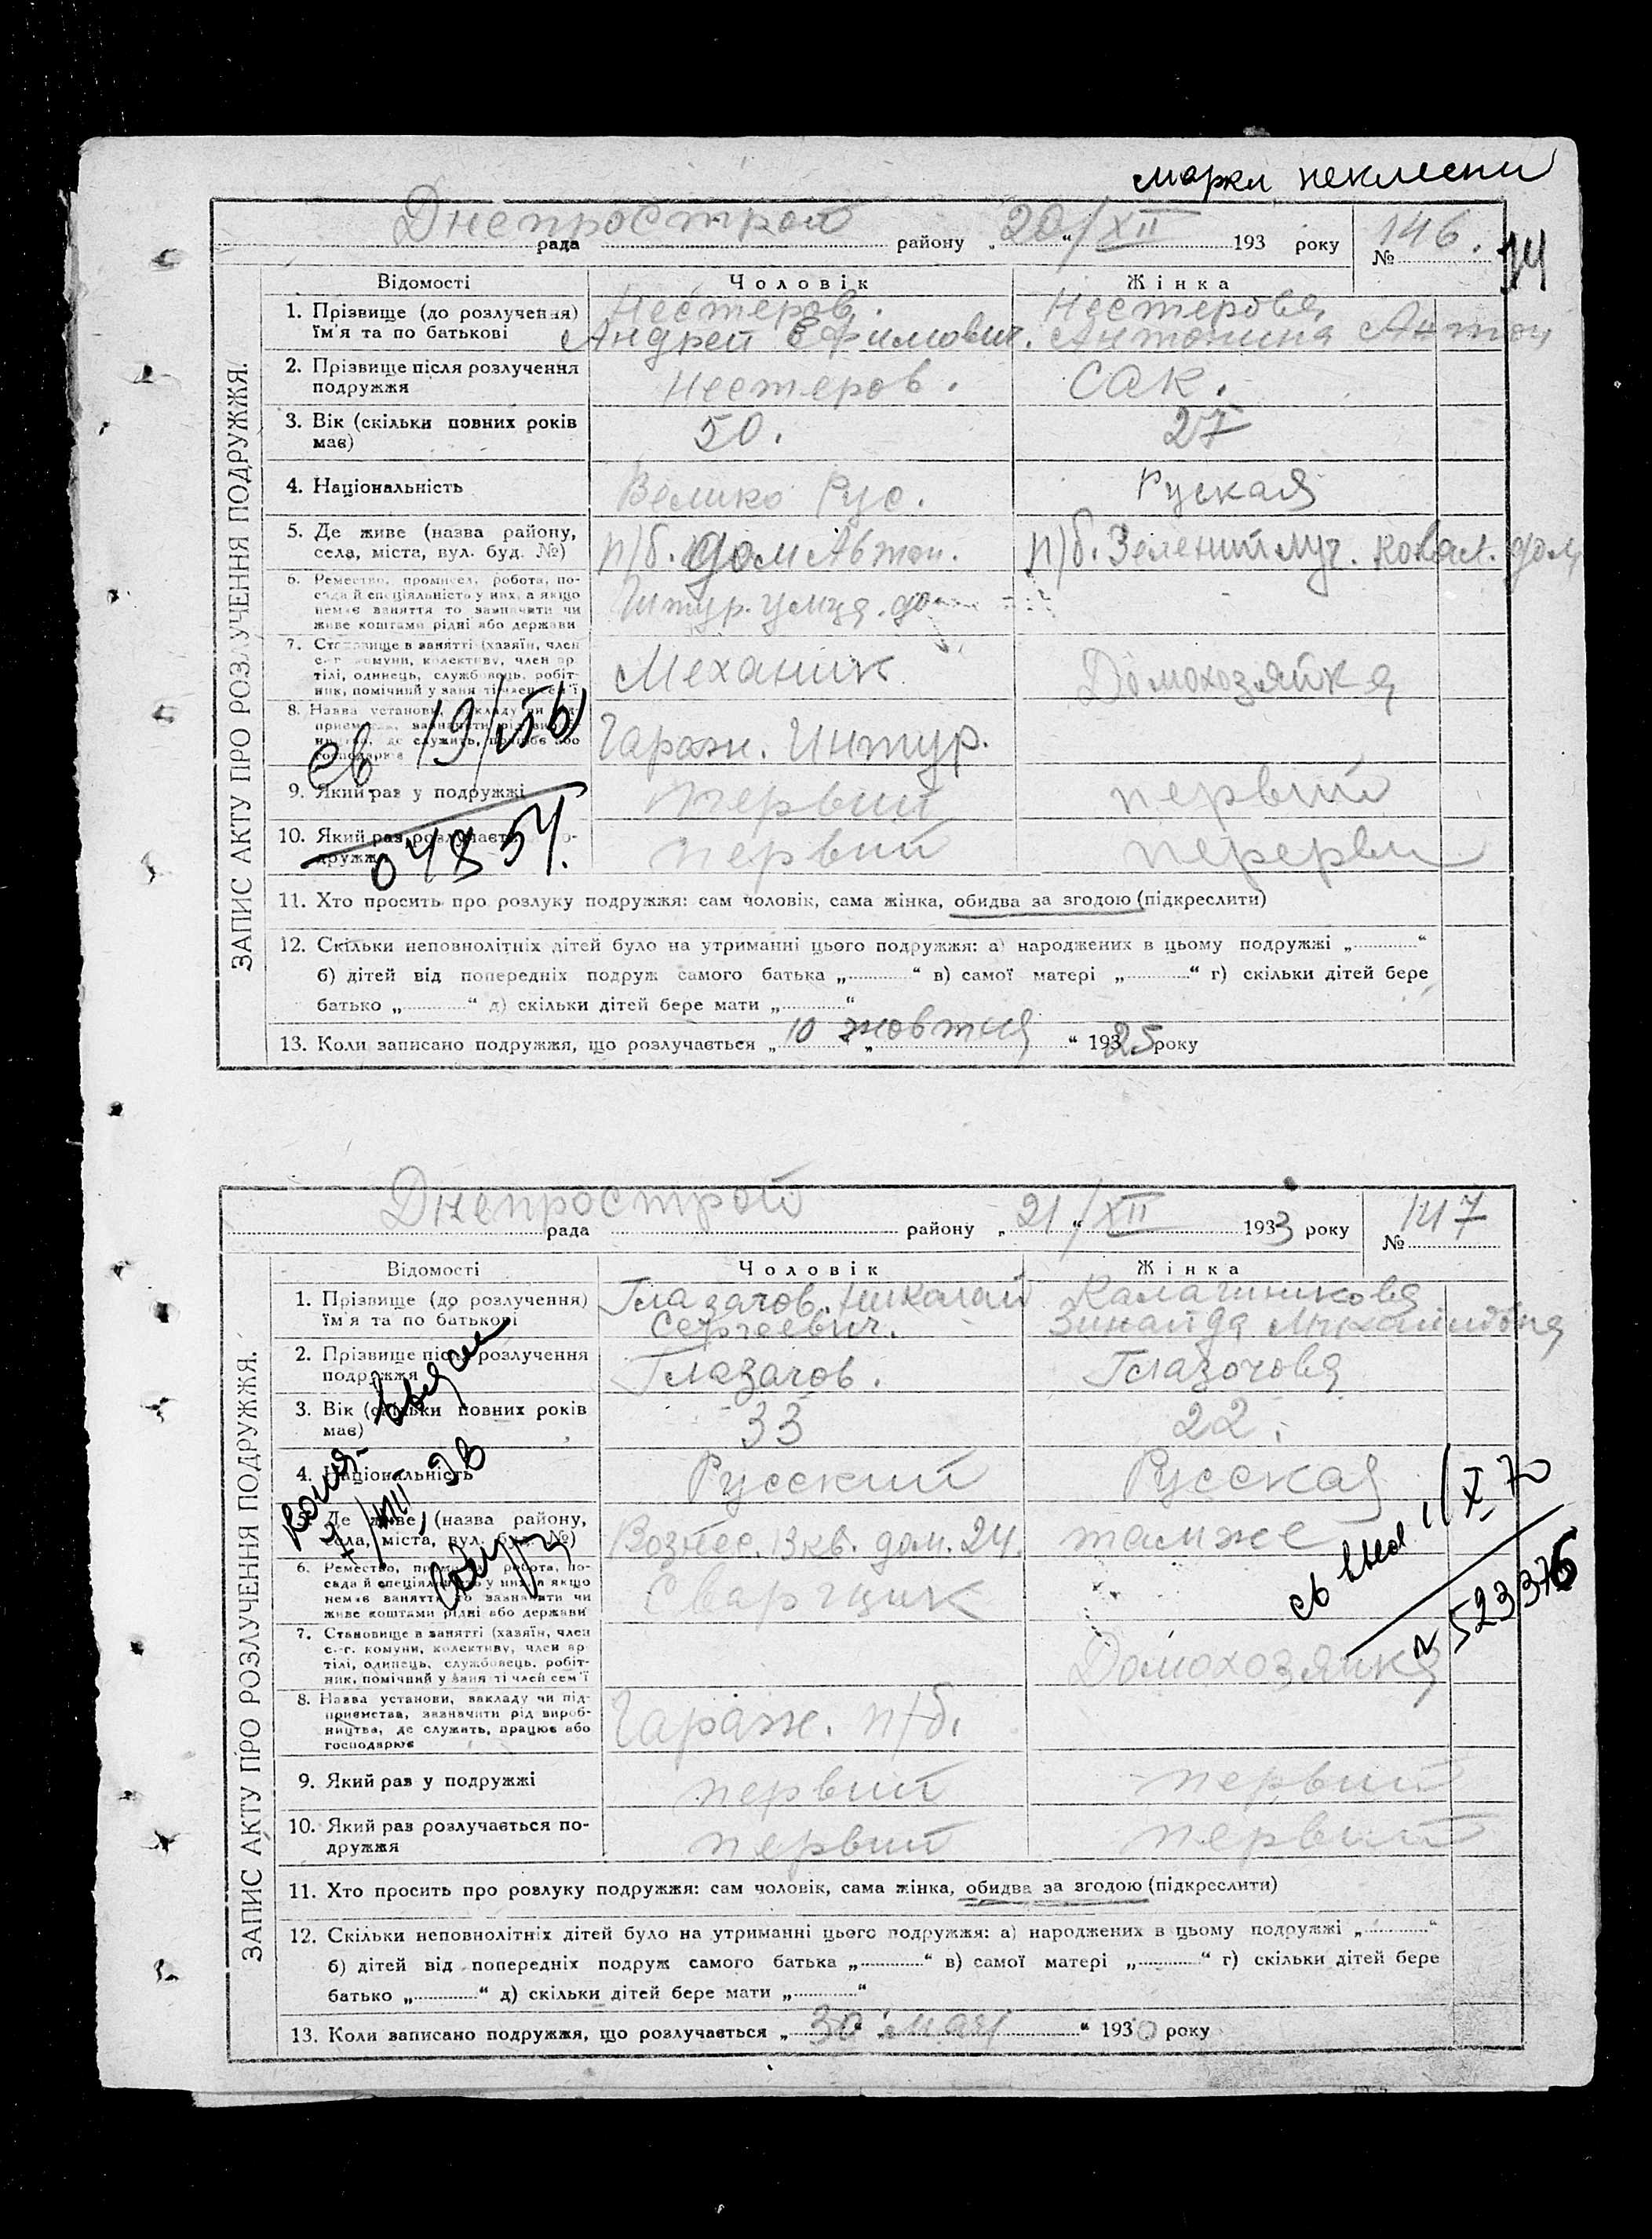 марки неклеени
Днепрострой
рада району „20“/XII 193 року № 146.
14
ЗАПИС АКТУ ПРО РОЗЛУЧЕННЯ ПОДРУЖЖЯ.
Відомості Чоловік Жінка
1. Прізвище (до розлучення) Нестеров. Нестерова
їм'я та по батькові Андрей Ефимович. Антонина Антон
2. Прізвище після розлучення
подружжя Нестеров. Сак.
3. Вік (скільки повних років
має) 50. 27
4. Національність Велико Рус. Руская
5. Де живе (назва району,
села, міста, вул. буд. №) п/б. дом Автон. п/б. Зелений луч. ковал. дом
6. Ремество, промисел, робота, по-
сада й спеціяльність у них, а якщо
немає заняття то зазначити чи
живе коштами рідні або держави
7. Становище в занятті (хазяїн, член
с.-г. комуни, колективу, член ар-
тілі, одинець, службовець, робіт-
ник, помічний у заня ті член сем'ї Механик Домохозяйка
8. Назва установи, закладу чи під-
приємства, зазначити рід вироб-
ництва, де служить, працює або
господарює Гараж. Интур.
св 19/
9. Який раз у подружжі первий первий
10. Який раз розлучається по-
дружжя первий перерви
04854.
11. Хто просить про розлуку подружжя: сам чоловік, сама жінка, обидва за згодою (підкреслити)
12. Скільки неповнолітніх дітей було на утриманні цього подружжя: а) народжених в цьому подружжі „............“
б) дітей від попередніх подруж самого батька „............“ в) самої матері „............“ г) скільки дітей бере
батько „............“ д) скільки дітей бере мати „............“
13. Коли записано подружжя, що розлучається „10 „жовтня“ 193 25 року
Днепрострой
рада району „21“/XII 1933 року № 147
ЗАПИС АКТУ ПРО РОЗЛУЧЕННЯ ПОДРУЖЖЯ.
Відомості Чоловік Жінка
1. Прізвище (до розлучення) Глазачов. Николай Калачникова
їм'я та по батькові Сергеевич. Зинаида Михайловна
2. Прізвище після розлучення
подружжя Глазачов. Глазочова
3. Вік (скільки повних років
має) 33 22.
4. Національність Русский Русская
5. Де живе (назва району,
села, міста, вул. буд. №) Вознес. 13 кв. дом. 24. тамже
6. Ремество, промисел, робота, по-
сада й спеціяльність у них, а якщо
немає заняття то зазначити чи
живе коштами рідні або держави Сварщик
св выд 1/X 70
N 523376
7. Становище в занятті (хазяїн, член
с.-г. комуни, колективу, член ар-
тілі, одинець, службовець, робіт-
ник, помічний у заня ті член сем'ї Домохозяика
8. Назва установи, закладу чи під-
приємства, зазначити рід вироб-
ництва, де служить, працює або
господарює Гараж. п/б.
9. Який раз у подружжі первий первий
10. Який раз розлучається по-
дружжя первий первий
11. Хто просить про розлуку подружжя: сам чоловік, сама жінка, обидва за згодою (підкреслити)
12. Скільки неповнолітніх дітей було на утриманні цього подружжя: а) народжених в цьому подружжі „............“
б) дітей від попередніх подруж самого батька „............“ в) самої матері „............“ г) скільки дітей бере
батько „............“ д) скільки дітей бере мати „............“
13. Коли записано подружжя, що розлучається „30“ мая“ 1930 року